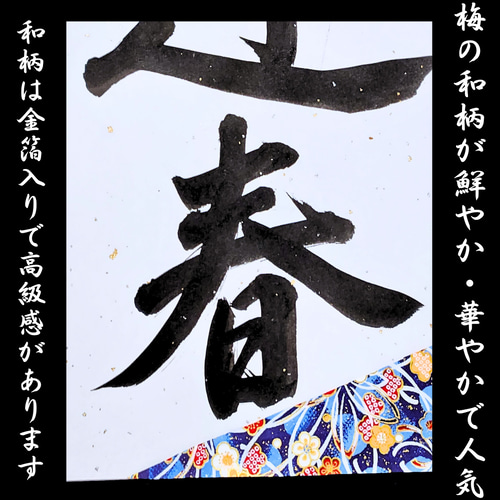 梅の和柄が鮮やか・華やかで人気
迎春
和柄は金箔入りで高級感があります